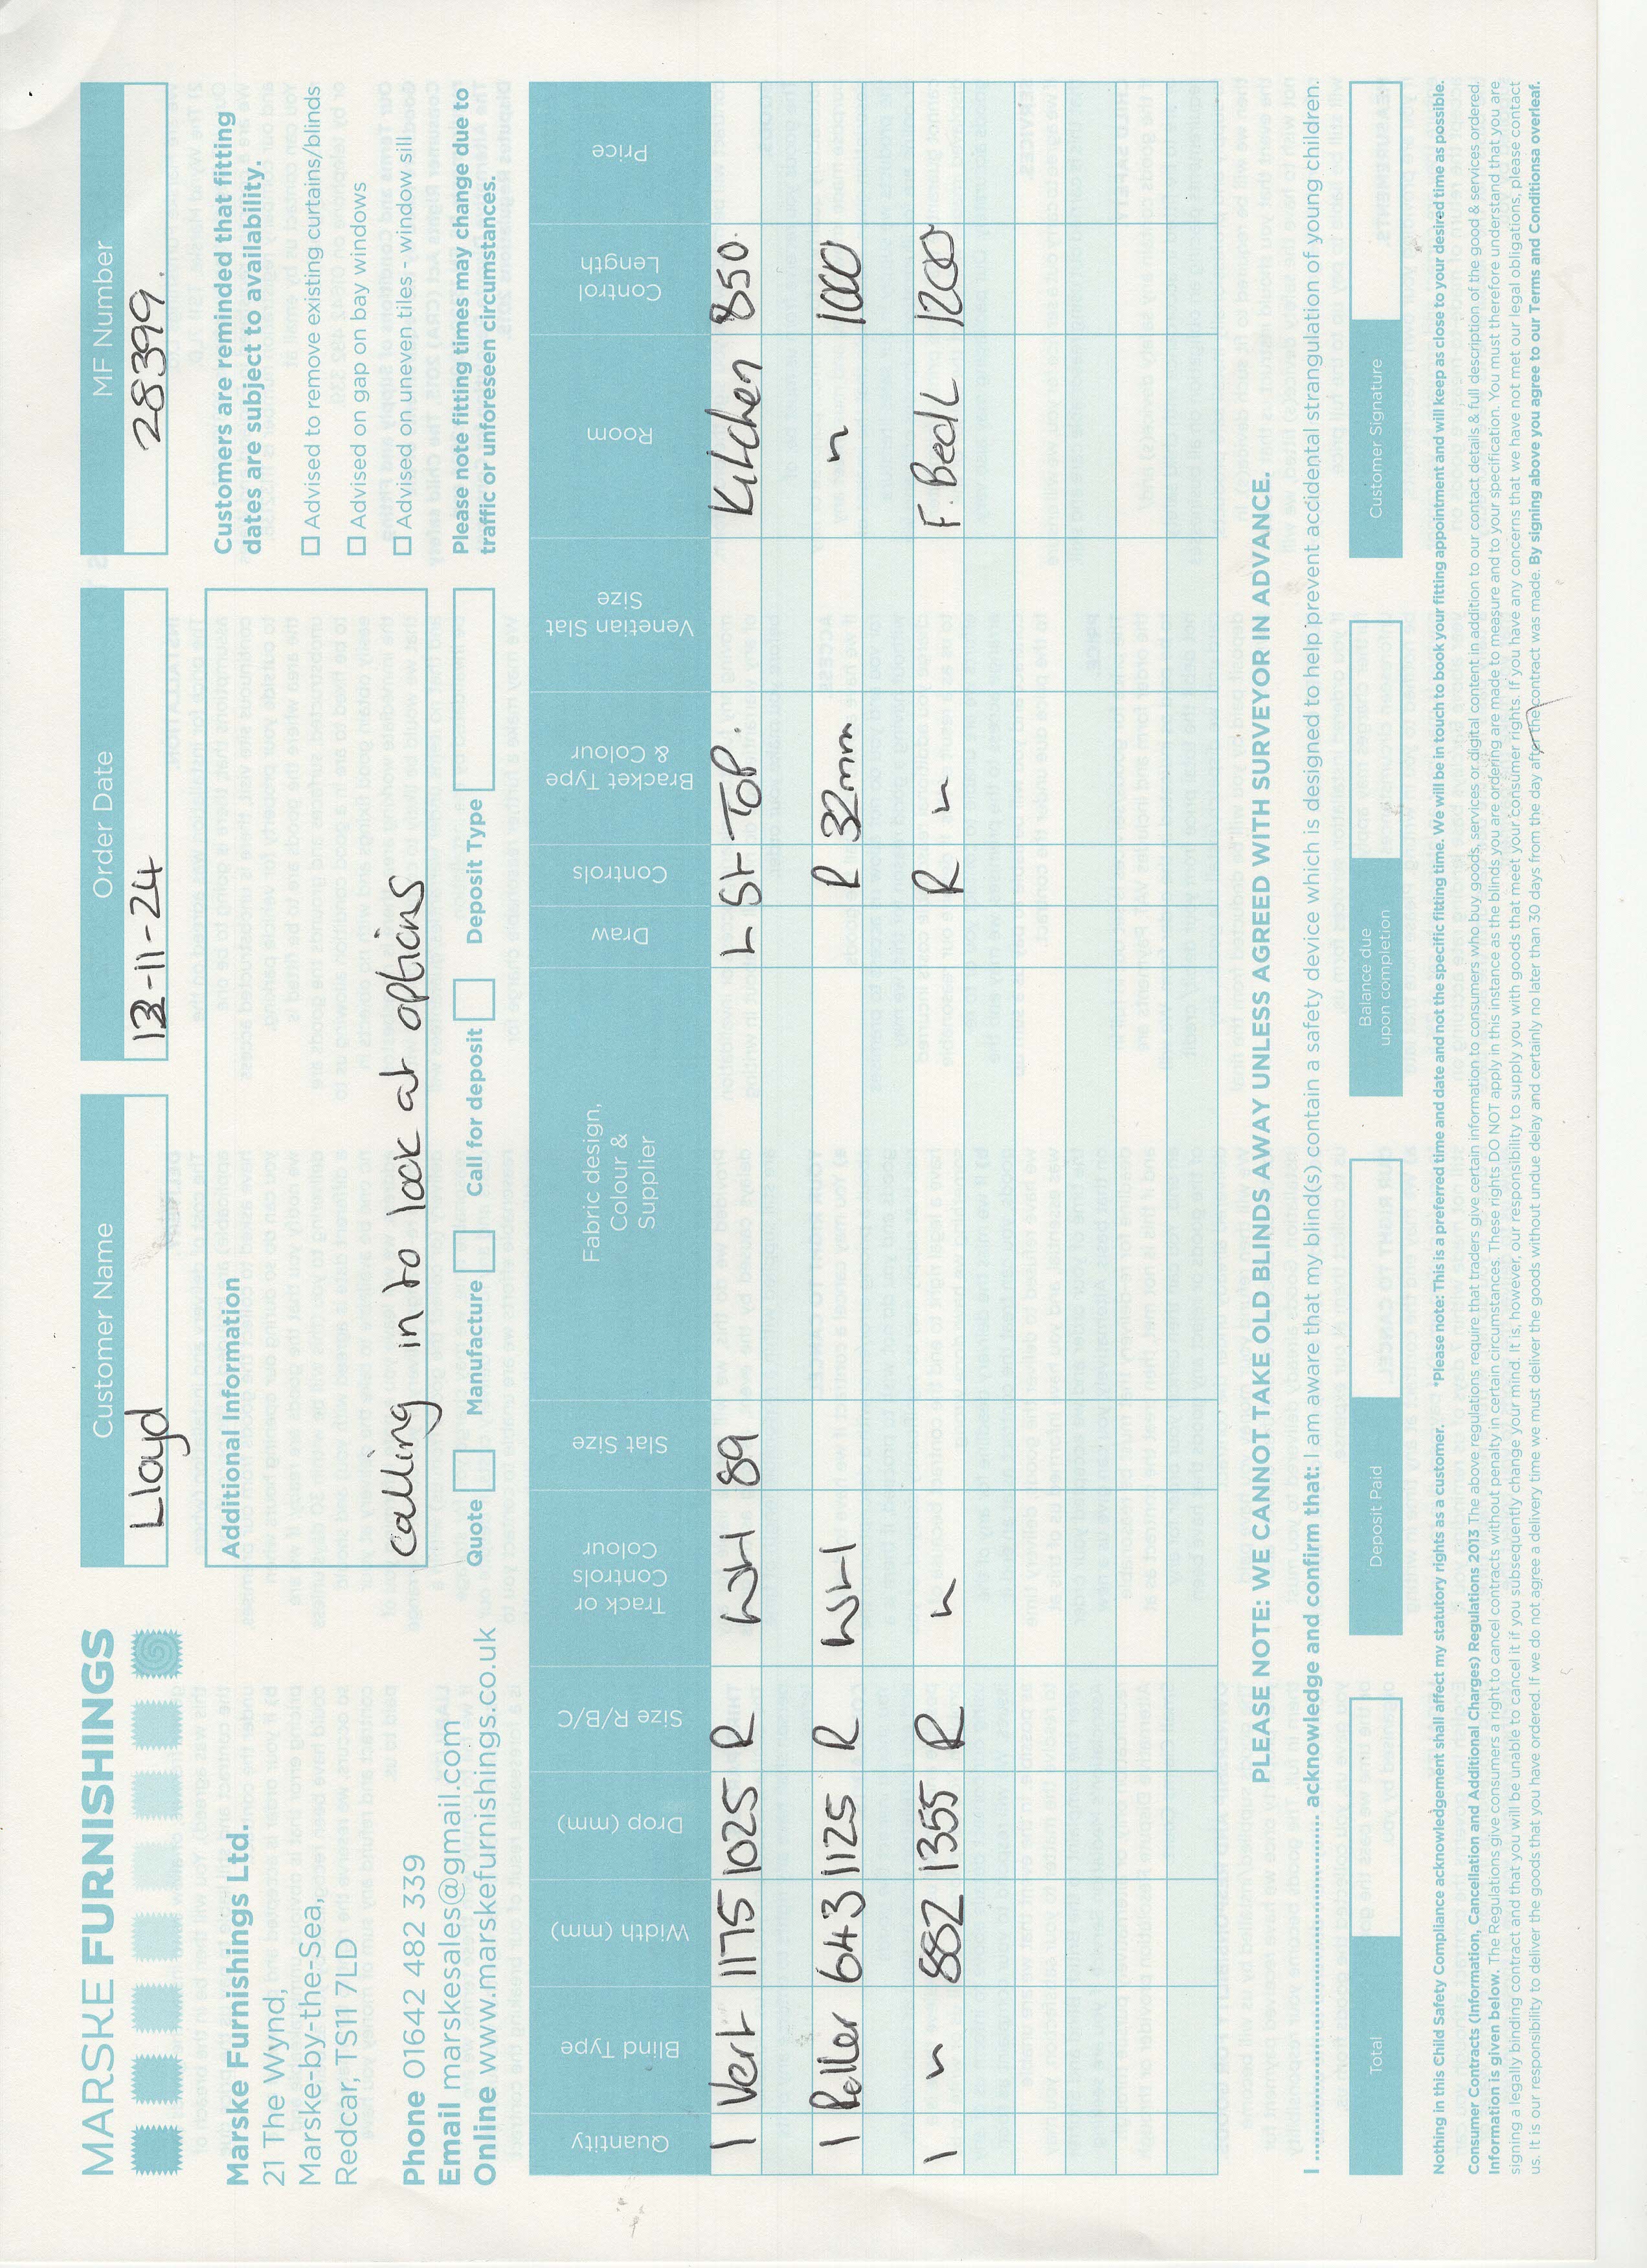 MARSKE FURNISHINGS
Marske Furnishings Ltd.
21 The Wynd,
Marske-by-the-Sea,
Redcar, TS11 7LD
Phone 01642 482 339
Email marskesales@gmail.com
Online www.marskefurnishings.co.uk
Customer Name
Lloyd
Order Date
13-11-24
MF Number
28399.
Additional Information
calling in to look at options
Quote
Manufacture
Call for deposit
Deposit Type
Customers are reminded that fitting
dates are subject to availability.
Advised to remove existing curtains/blinds
Advised on gap on bay windows
Advised on uneven tiles - window sill
Please note fitting times may change due to
traffic or unforeseen circumstances.
Quantity Blind Type Width (mm) Drop (mm) Size R/B/C Track or Controls Colour Slat Size Fabric design, Colour & Supplier Draw Controls Bracket Type & Colour Venetian Slat Size Room Control Length Price
1 Vert 1175 1025 R WH 89 L St Top. Kitchen 850.
1 Roller 643 1125 R WH R 32mm " 1000
1 " 882 1355 R " R " F. Bed L 1200
PLEASE NOTE: WE CANNOT TAKE OLD BLINDS AWAY UNLESS AGREED WITH SURVEYOR IN ADVANCE.
I .......... acknowledge and confirm that: I am aware that my blind(s) contain a safety device which is designed to help prevent accidental strangulation of young children.
Total
Deposit Paid
Balance due
upon completion
Customer Signature
Nothing in this Child Safety Compliance acknowledgement shall affect my statutory rights as a customer. *Please note: This is a preferred time and date and not the specific fitting time. We will be in touch to book your fitting appointment and will keep as close to your desired time as possible.
Consumer Contracts (Information, Cancellation and Additional Charges) Regulations 2013 The above regulations require that traders give certain information to consumers who buy goods, services or digital content in addition to our contact details & full description of the good & services ordered.
Information is given below. The Regulations give consumers a right to cancel contracts without penalty in certain circumstances. These rights DO NOT apply in this instance as the blinds you are ordering are made to measure and to your specification. You must therefore understand that you are
signing a legally binding contract and that you will be unable to cancel if you subsequently change your mind. It is, however, our responsibility to supply you with goods that meet your consumer rights. If you have any concerns that we have not met our legal obligations, please contact
us. It is our responsibility to deliver the goods that you have ordered. If we do not agree a delivery time we must deliver the goods without undue delay and certainly no later than 30 days from the day after the contract was made. By signing above you agree to our Terms and Conditionsa overleaf.